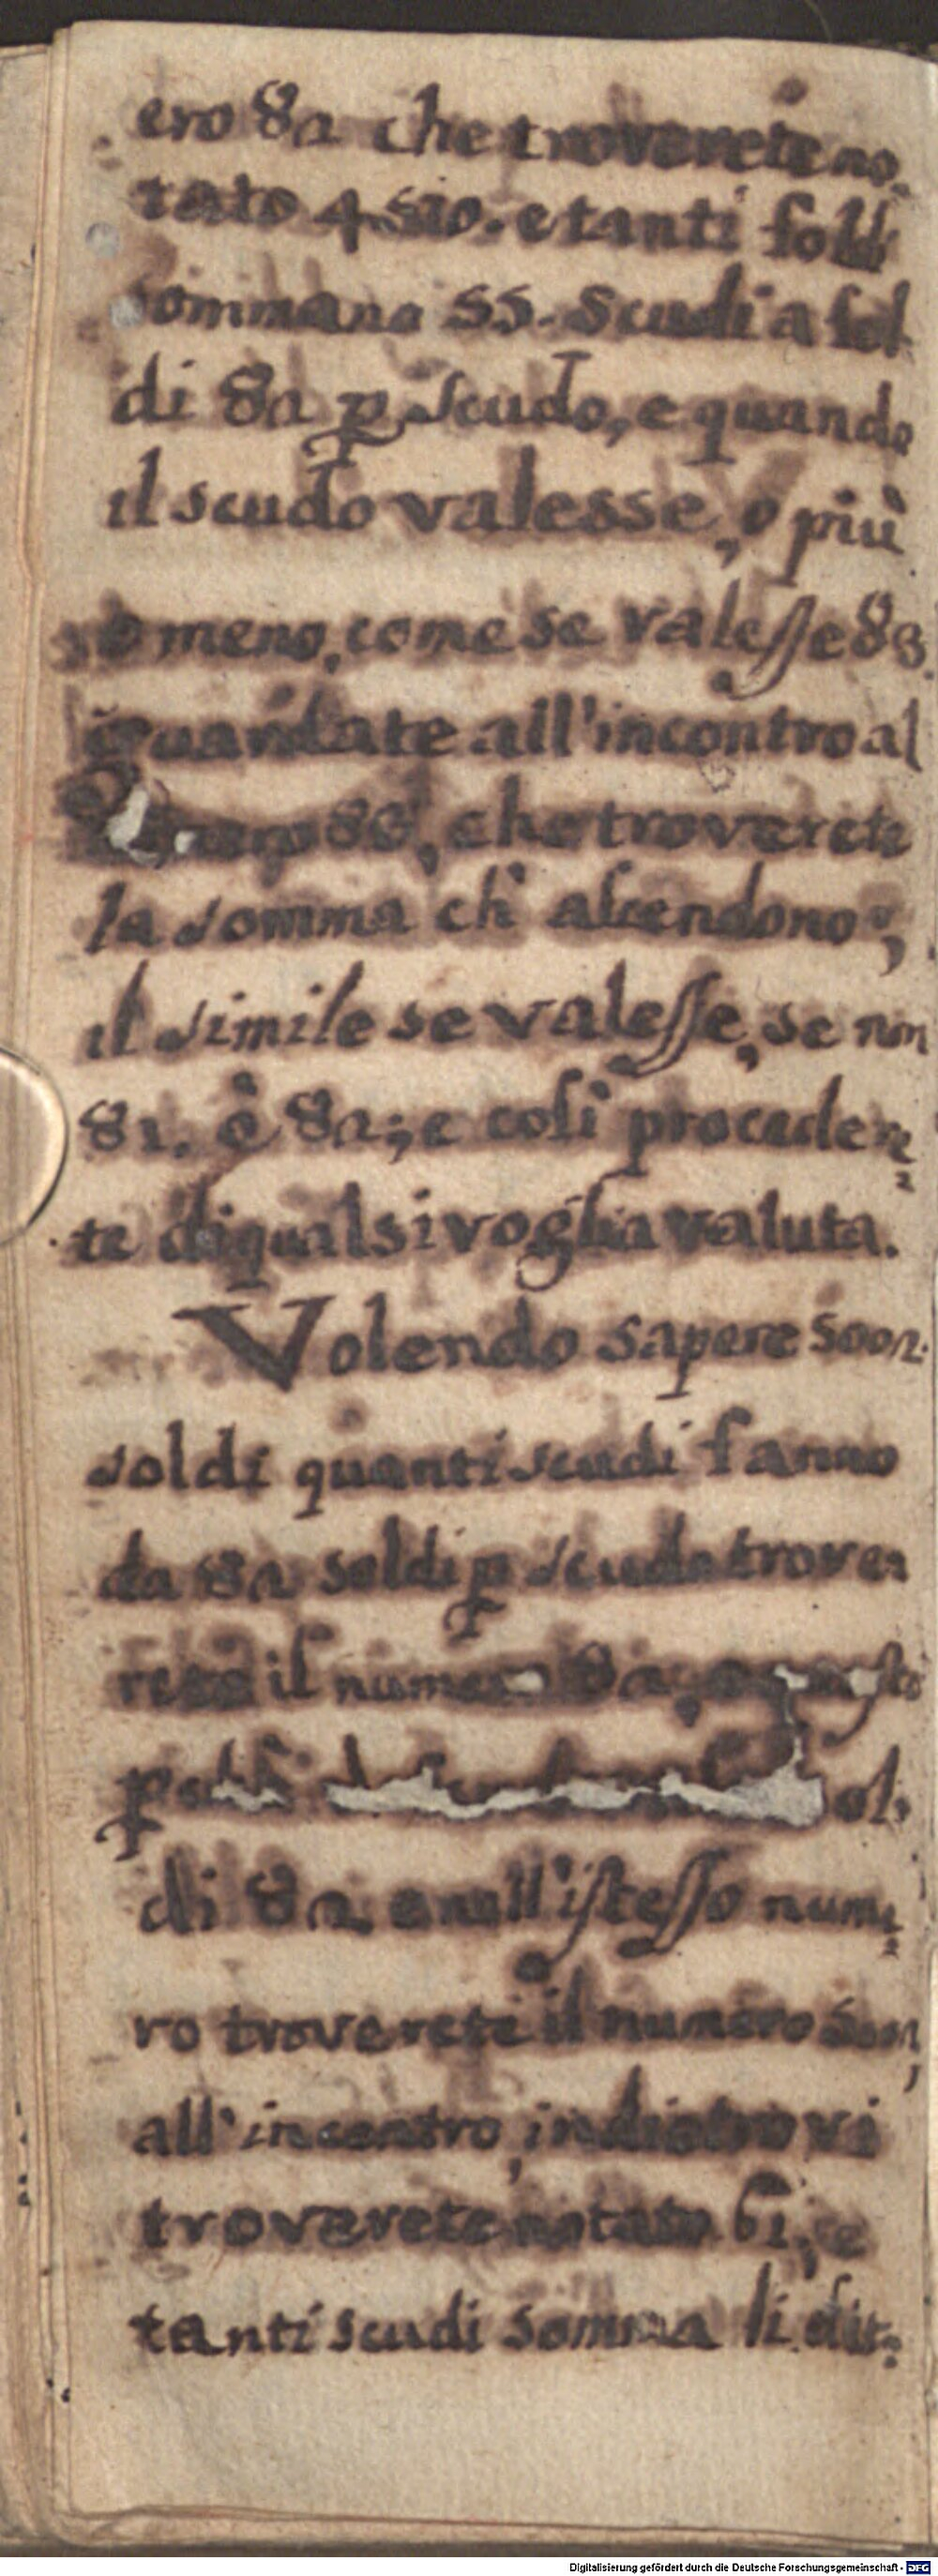 ero 82 che troverete no
tato 4510. e tanti soldi
sommano 55. Scudi a sol
di 82 p scudo, e quando
il scudo valesse, o più
o meno, come se valesse 83
guardate all'incontro al
86, che troverete
la somma ch' ascendono;
il simile se valesse, se non
81. ò 82; e così procede
te di qual si voglia valuta.
Volendo sapere 5002.
soldi quanti scudi fanno
da 82 soldi p scudo trove
rete il numero 82,
sol
di 82 e nell'istesso nume
ro troverete il numero 5002,
all'incontro, indietro vi
troverete notato 61, e
tanti scudi somma li dit
Digitalisierung gefördert durch die Deutsche Forschungsgemeinschaft - DFG